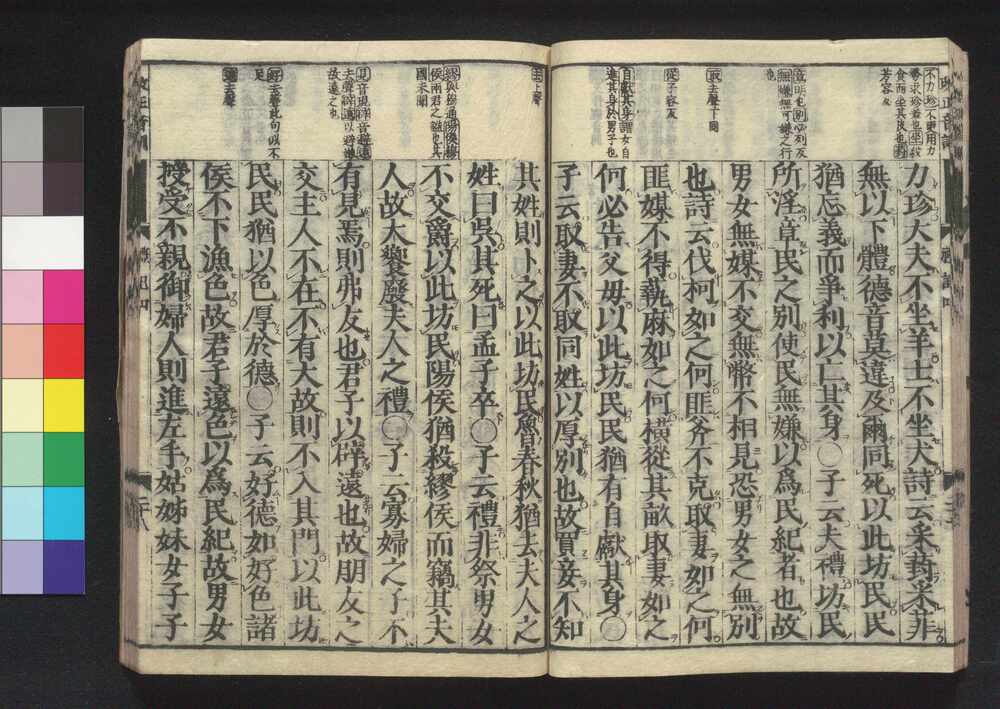 力珍大夫不坐羊士不坐犬詩云采葑采菲
無以下體德音莫違及爾同死以此坊民民
猶忘義而爭利以亡其身〇子云夫禮坊民
所淫章民之別使民無嫌以爲民紀者也故
男女無媒不交無幣不相見恐男女之無別
也詩云伐柯如之何匪斧不克取妻如之何
匪媒不得蓺麻如之何橫從其畝取妻如之
何必告父母以此坊民民猶有自獻其身〇
子云取妻不取同姓以厚別也故買妾不知
其姓則卜之以此坊民魯春秋猶去夫人之
姓曰吳其死曰孟子卒〇子云禮非祭男女
不交爵以此坊民陽侯猶殺繆侯而竊其夫
人故大饗廢夫人之禮〇子云寡婦之子不
有見焉則弗友也君子以辟遠也故朋友之
交主人不在不有大故則不入其門以此坊
民民猶以色厚於德〇子云好德如好色諸
侯不下漁色故君子遠色以爲民紀故男女
授受不親御婦人則進左手姑姊妹女子子
取去聲下同
從子容反
自獻其身謂女自
進其身於男子也
去上聲
好去聲此句似不
足
遠去聲